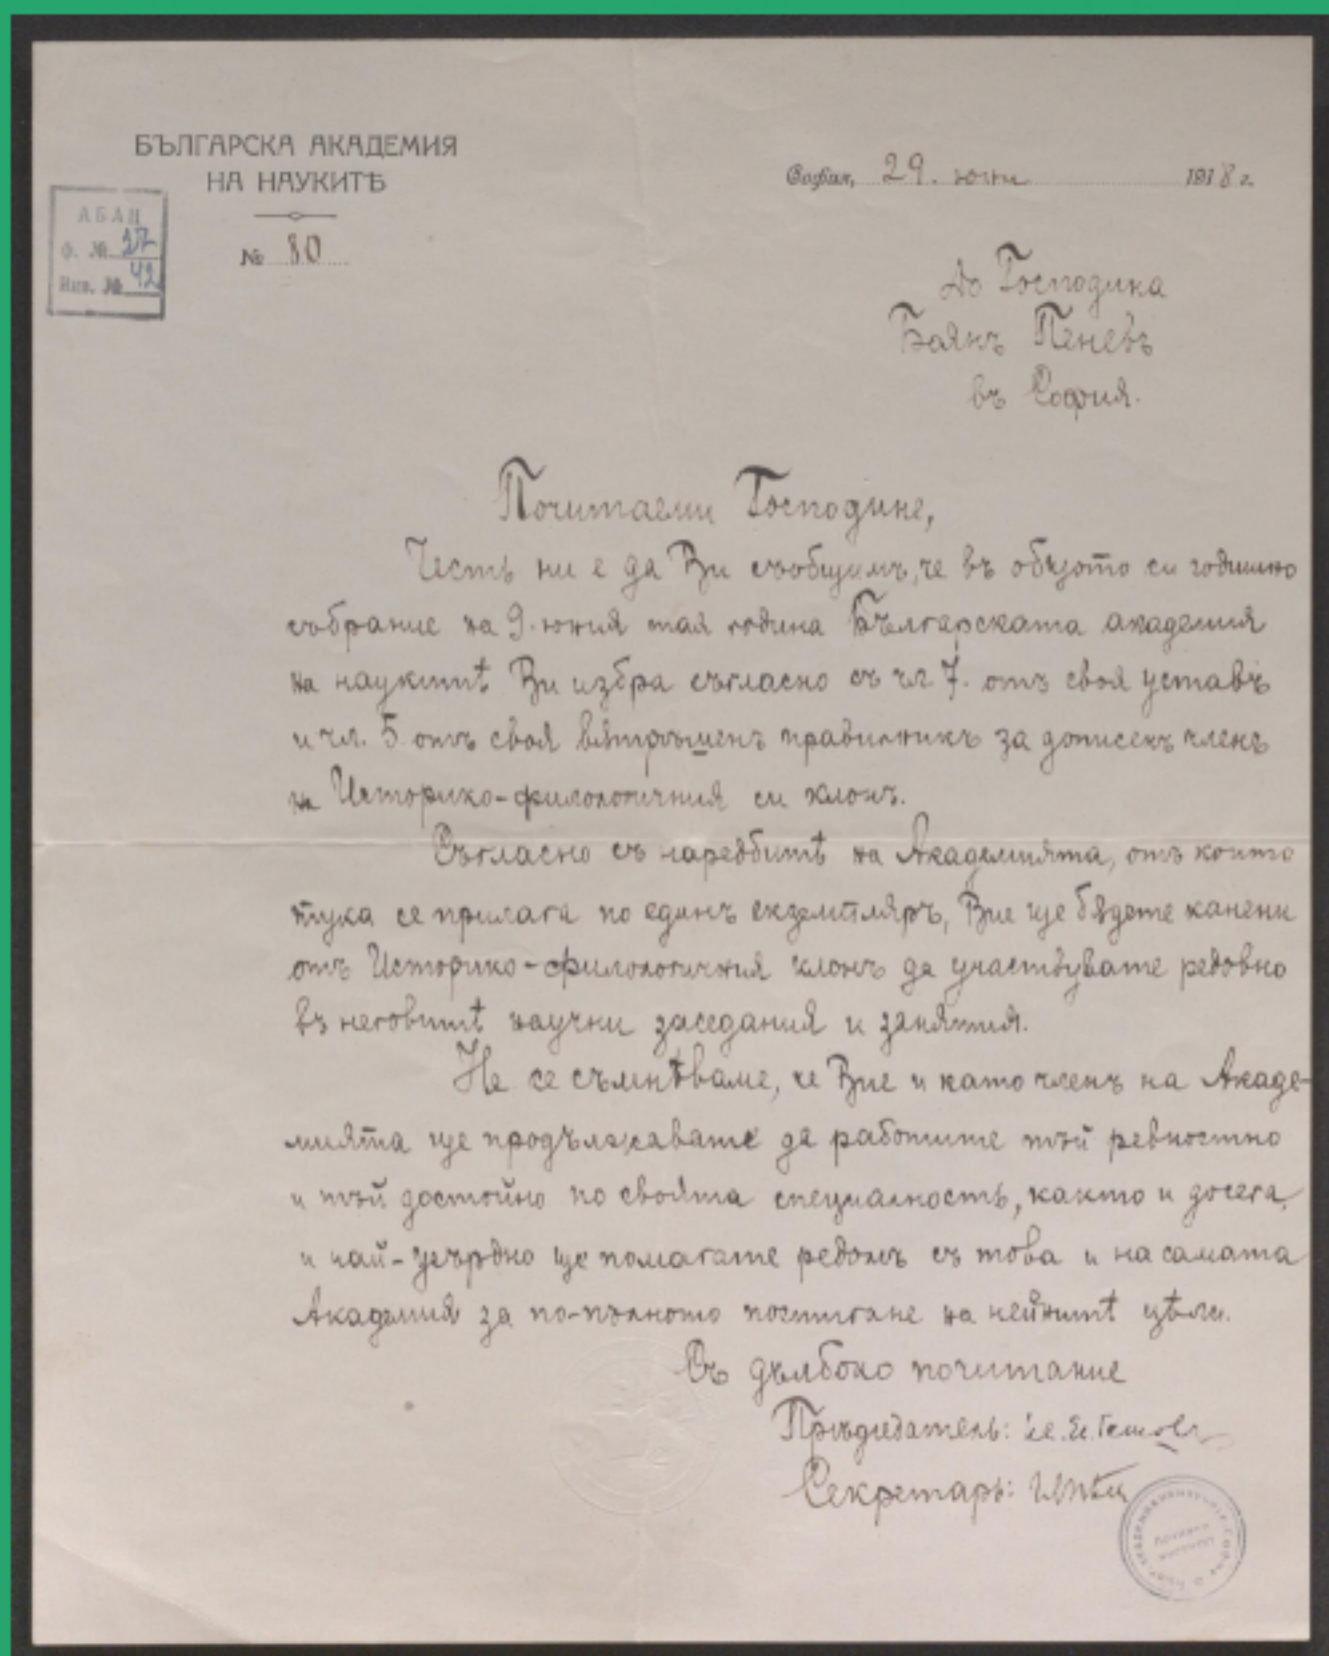 БЪЛГАРСКА АКАДЕМИЯ
НА НАУКИТѢ
№ 80
АБАН
Ф. № 37
Инв. № 42
София, 29. юни 1918 г.
До Господина
Боянъ Пеневъ
въ София.
Почитаеми Господине,
Честь ни е да Ви съобщимъ, че въ общото си годишно
събрание на 9. юния тая година Българската академия
на наукитѣ Ви избра съгласно съ чл. 7. отъ своя уставъ
и чл. 5 отъ своя вѫтрѣшенъ правилникъ за дописенъ членъ
на Историко-филологичния си клонъ.
Съгласно съ наредбитѣ на Академията, отъ които
тука се прилага по единъ екземпляръ, Вие ще бѫдете канени
отъ Историко-филологичния клонъ да участвувате редовно
въ неговитѣ научни заседания и занятия.
Не се съмнѣваме, че Вие и като членъ на Акаде-
мията ще продължавате да работите тъй ревностно
и тъй достойно по своята специалность, както и досега,
и най-усърдно ще помагате редомъ съ това и на самата
Академия за по-пълното постигане на нейнитѣ цѣли.
Съ дълбоко почитание
Прѣдседатель: Ив. Ев. Гешовъ
Секретарь: